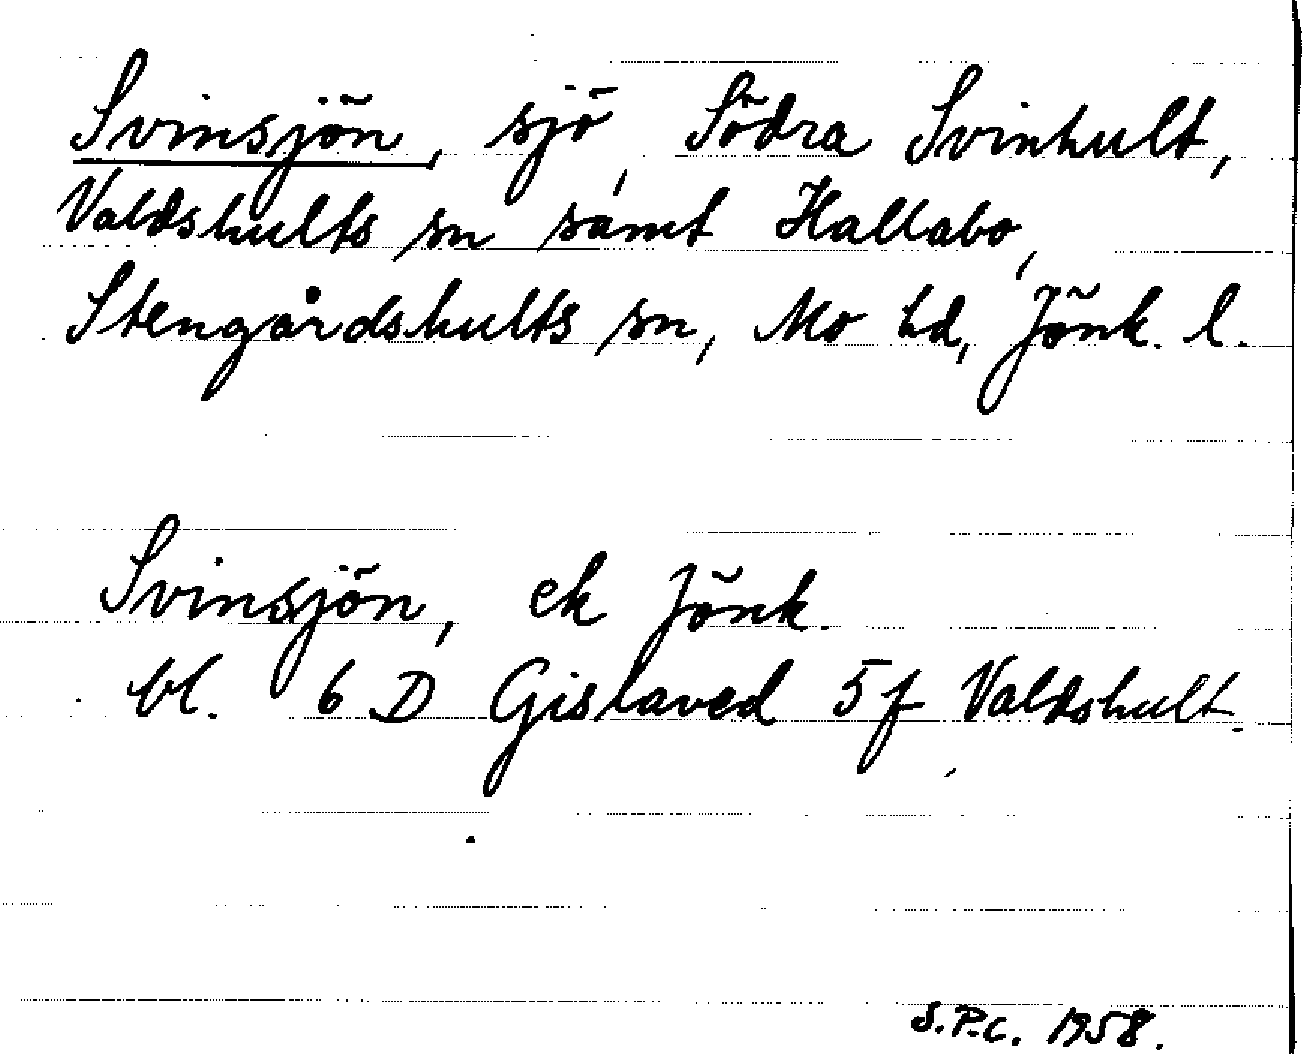 Svinsjön, sjö, Södra Svinhult,
Valdshults sn samt Hallabo,
Stengårdshults sn, Mo hd, Jönk. l.
Svinsjön, ek Jönk.
bl. 6 D Gislaved 5 f Valdshult.
S.P.C. 1958.